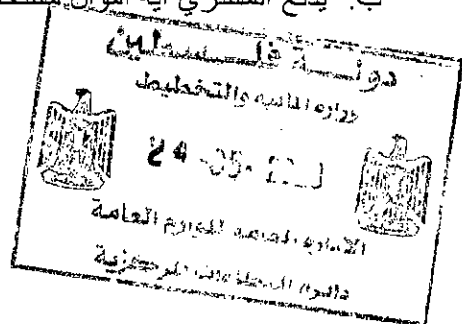 ب. يدفع المشتري أية أموال
دولة فلسطين
وزارة المالية والتخطيط
الإدارة العامة للوازم العامة
دائرة العطاءات المركزية